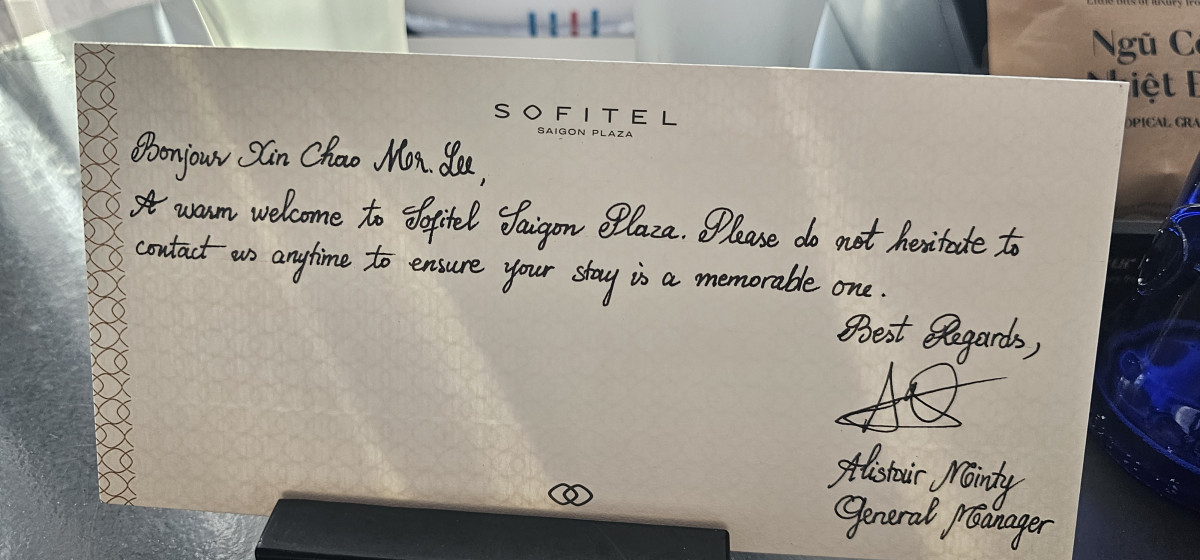 SOFITEL
SAIGON PLAZA
Bonjour Xin Chao Mr. Lee,
A warm welcome to Sofitel Saigon Plaza. Please do not hesitate to
contact us anytime to ensure your stay is a memorable one.
Best Regards,
Alistair Minty
General Manager
Ngũ